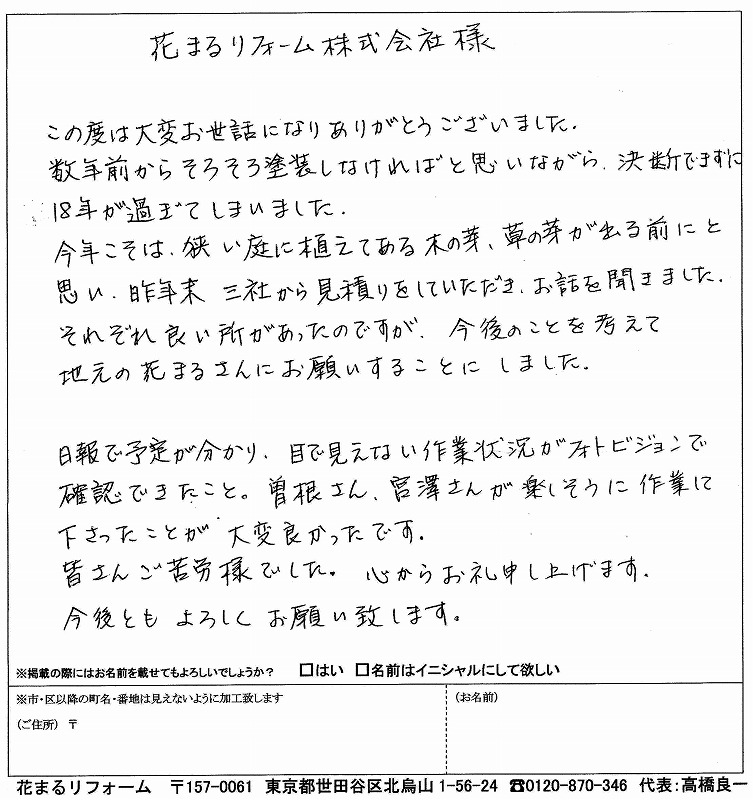 花まるリフォーム株式会社様
この度は大変お世話になりありがとうございました.
数年前からそろそろ塗装しなければと思いながら、決断できずに
18年が過ぎてしまいました.
今年こそは、狭い庭に植えてある木の芽、草の芽が出る前にと
思い、昨年末 三社から見積りをしていただき、お話を聞きました.
それぞれ良い所があったのですが、今後のことを考えて
地元の花まるさんにお願いすることにしました.
日報で予定が分かり、目で見えない作業状況がフォトビジョンで
確認できたこと。曽根さん、宮澤さんが楽しそうに作業して
下さったことが大変良かったです.
皆さんご苦労様でした。心からお礼申し上げます.
今後ともよろしくお願い致します。
※掲載の際にはお名前を載せてもよろしいでしょうか? □はい □名前はイニシャルにして欲しい
※市・区以降の町名・番地は見えないように加工致します
(ご住所) 〒
(お名前)
花まるリフォーム 〒157-0061 東京都世田谷区北烏山1-56-24 ☎0120-870-346 代表:高橋良一